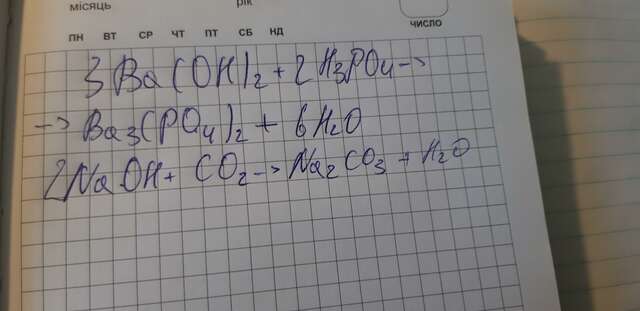 місяць рік
ПН ВТ СР ЧТ ПТ СБ НД ЧИСЛО
3Ba(OH)2+2H3PO4->
->Ba3(PO4)2+6H2O
2NaOH+CO2->Na2CO3+H2O